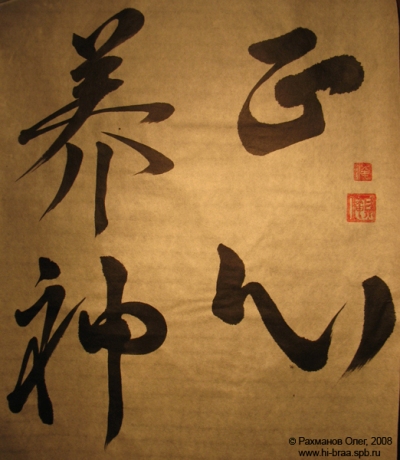 正心
养神
© Рахманов Олег, 2008
www.hi-braa.spb.ru